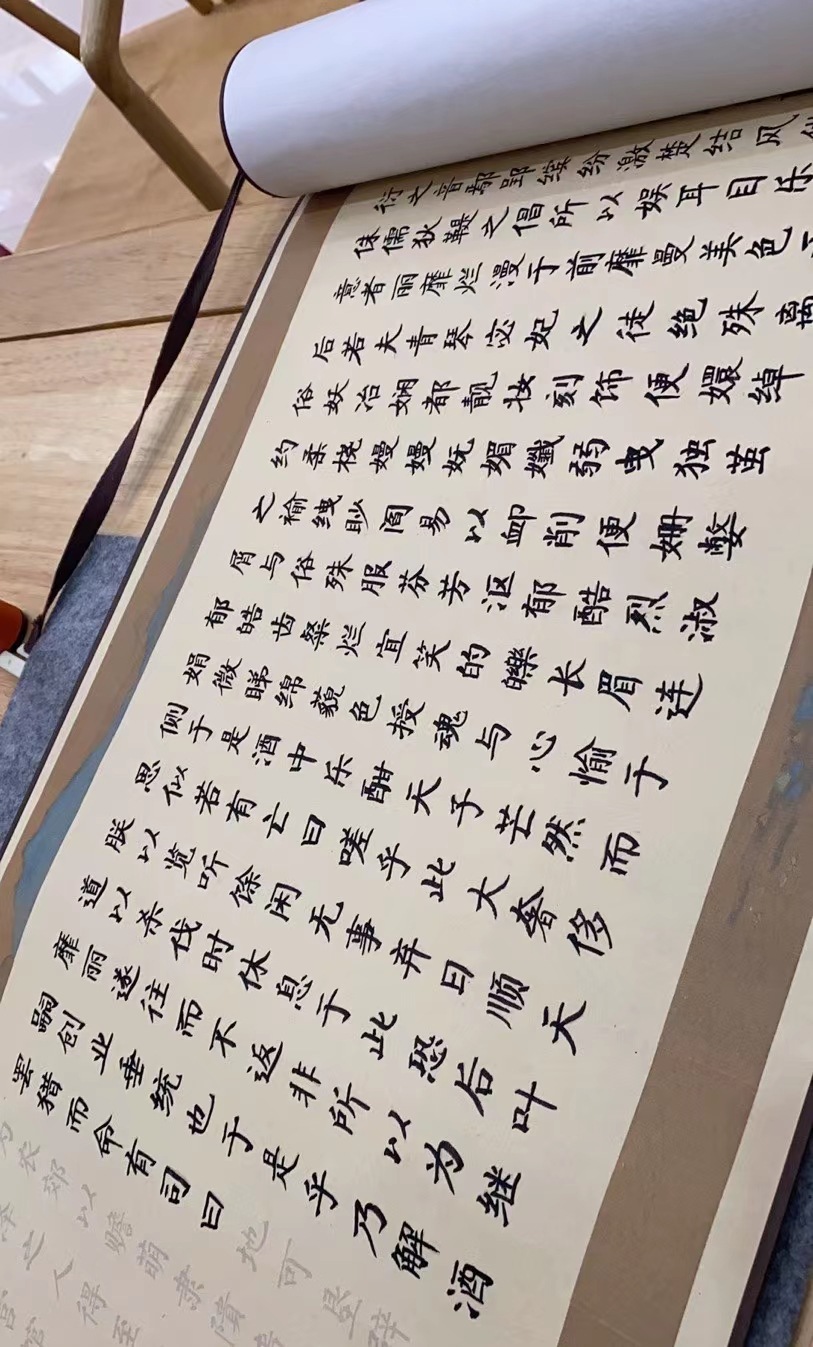 衍之音鄢郢缤纷激楚结风
侏儒狄鞮之倡所以娱耳目乐
意者丽靡烂漫于前靡曼美色于
后若夫青琴宓妃之徒绝殊离
俗妖冶娴都靓妆刻饰便嬛绰
约柔桡嫚嫚妩媚孅弱曳独茧
之褕绁眇阎易以卹削便姗嫳
屑与俗殊服芬芳沤郁酷烈淑
郁皓齿粲烂宜笑的皪长眉连
娟微睇绵藐色授魂与心愉于
侧于是酒中乐酣天子芒然而
思似若有亡曰嗟乎此大奢侈
朕以览听馀闲无事弃日顺天
道以杀伐时休息于此恐后叶
靡丽遂往而不返非所以为继
嗣创业垂统也于是乎乃解酒
罢猎而命有司曰地可垦辟
为农郊以赡萌隶隤
泽之人得至
宫馆